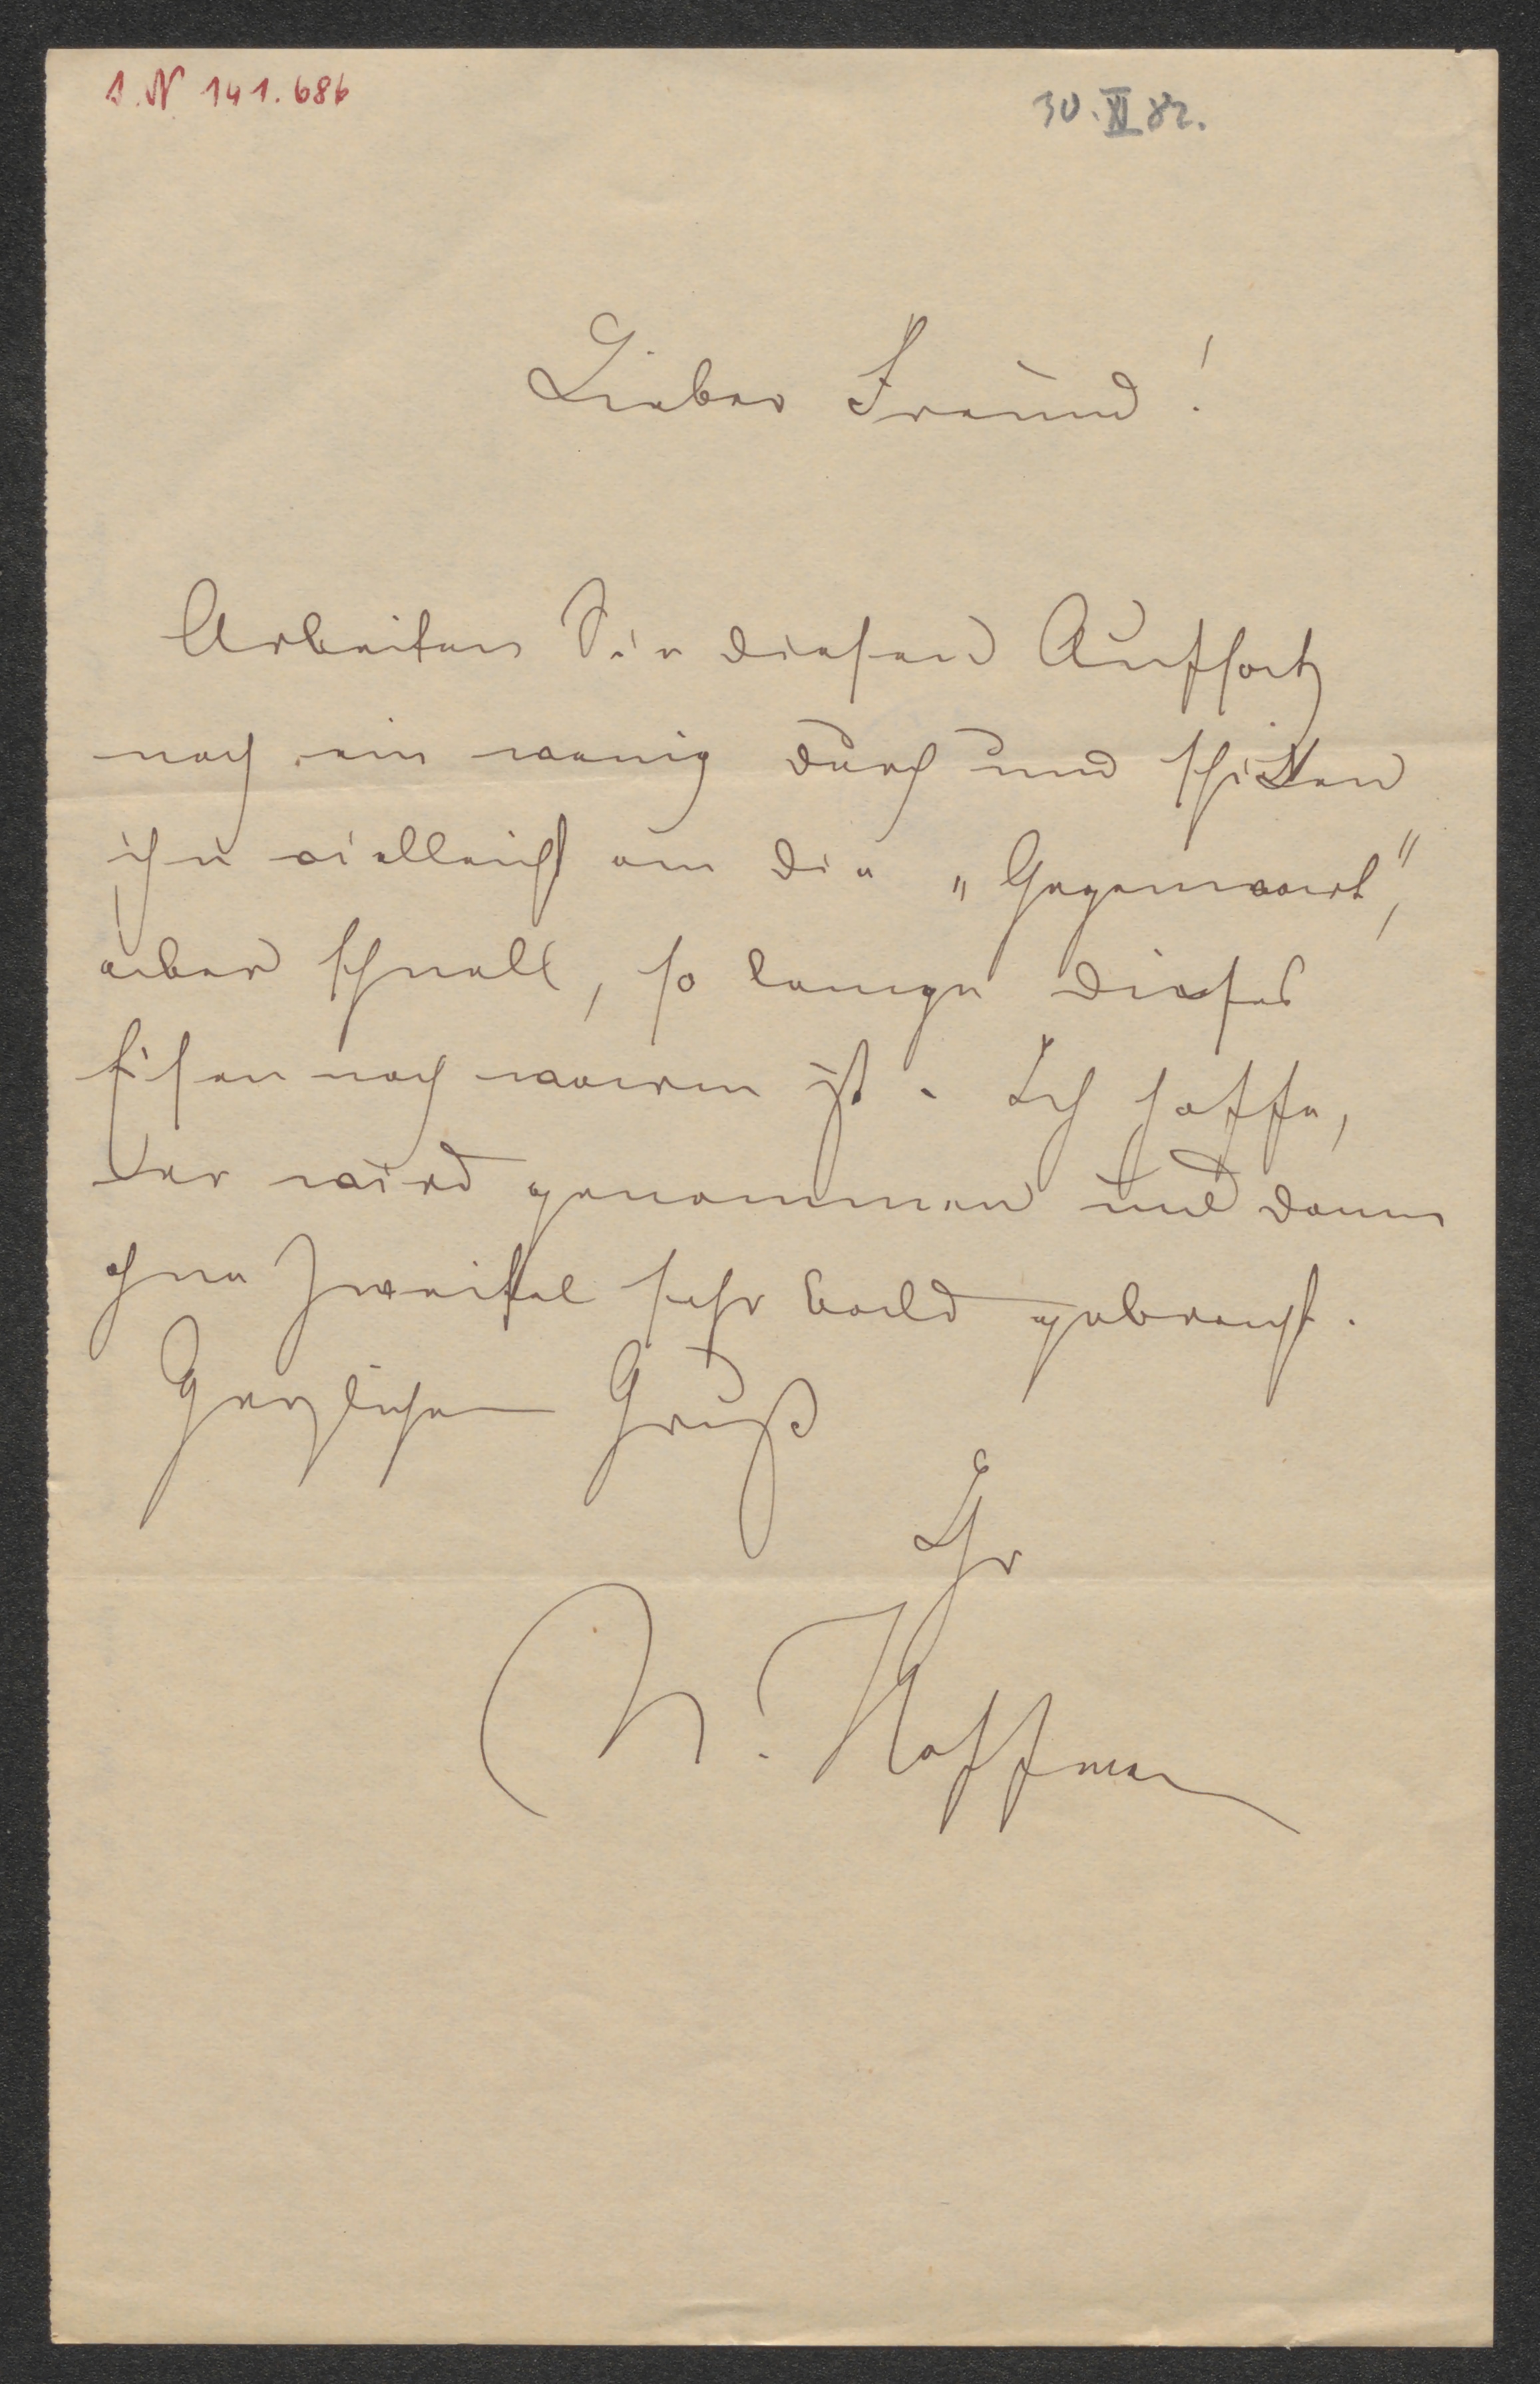 I.N 141.686
30.XI 82.
Lieber Freund!
Arbeiten Sie diesen Aufsatz
noch ein wenig durch und schicken
ihn vielleicht an die „Gegenwart",
aber schnell, so lange dieses
Eisen noch warm ist. Ich hoffe,
er wird genommen und dann
ohne Zweifel sehr bald gebracht.
Herzlichen Gruß
Ihr
N. Hoffmann